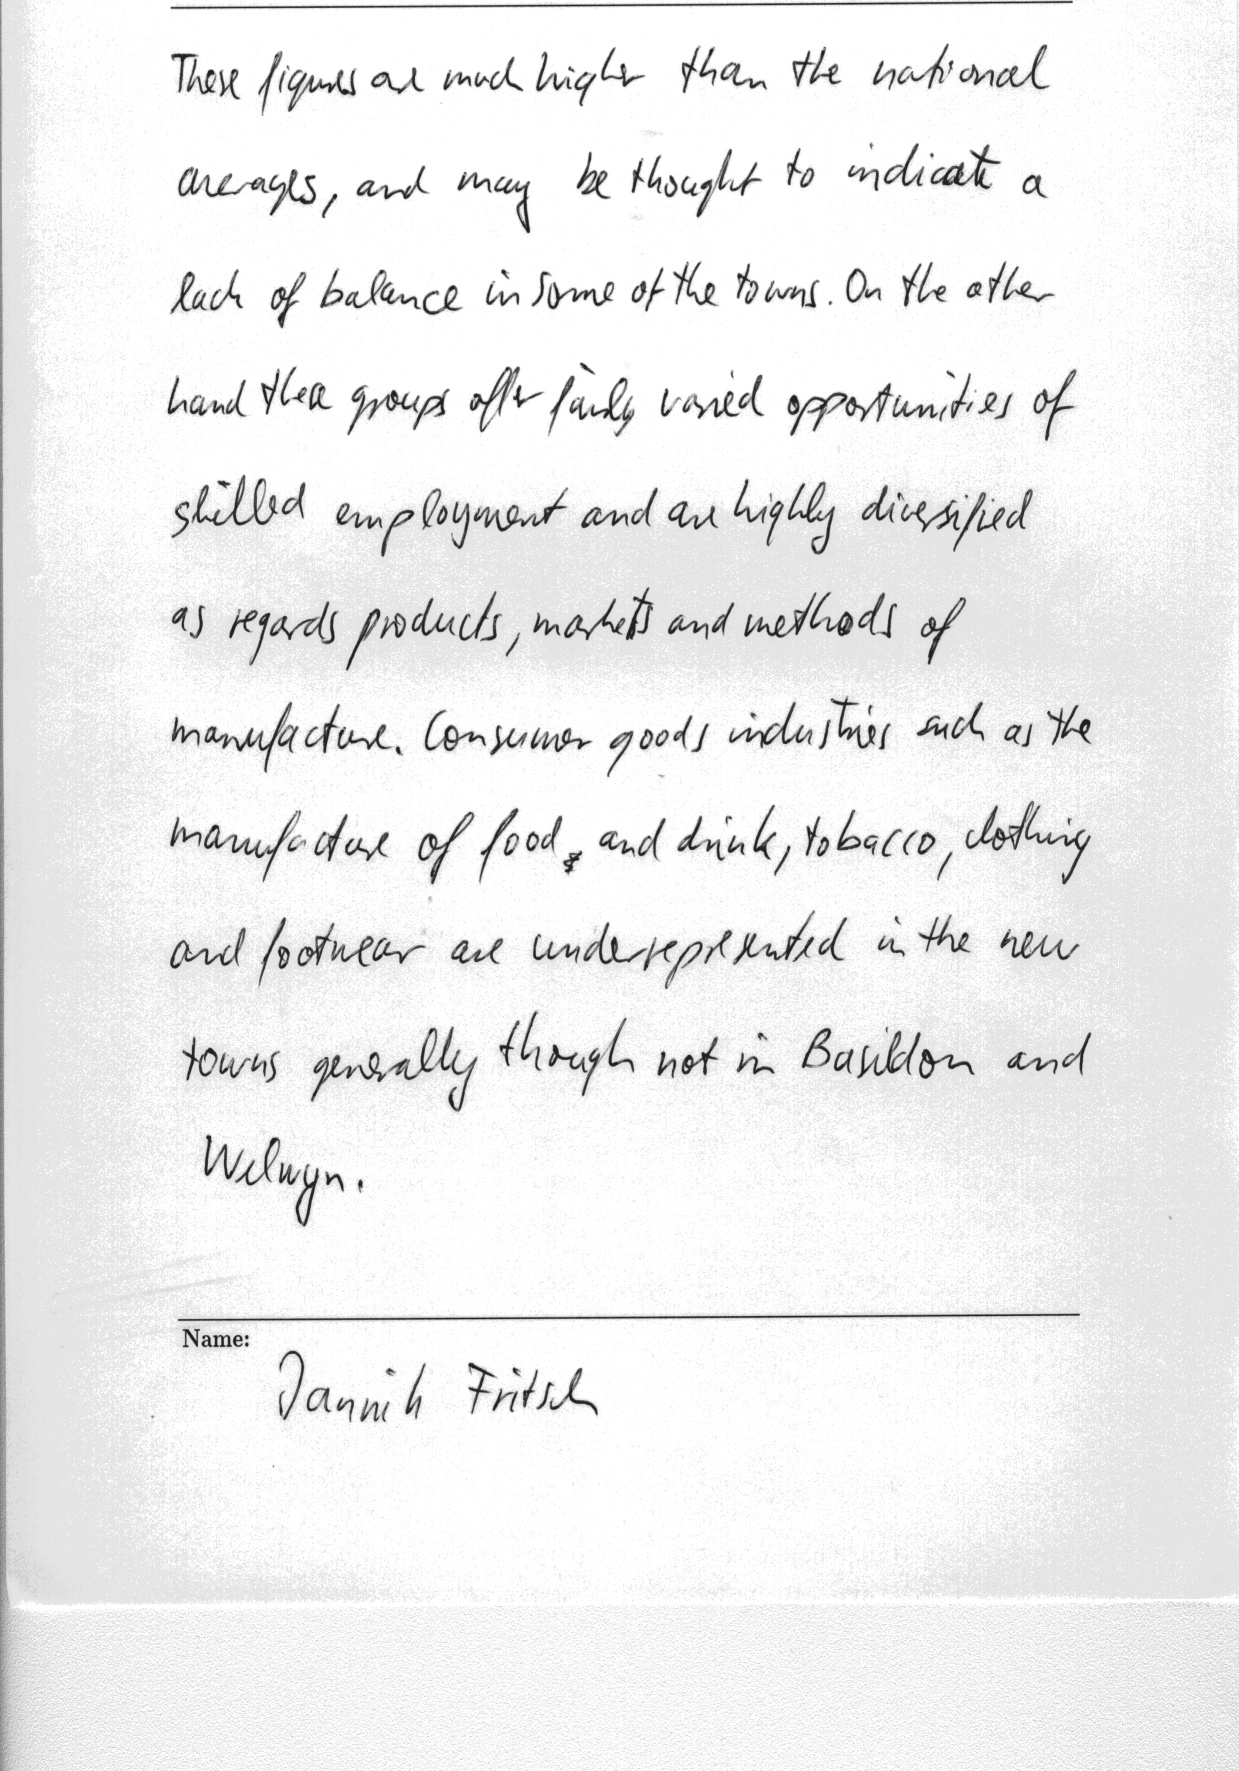 These figures are much higher than the national
averages, and may be thought to indicate a
lack of balance in some of the towns. On the other
hand these groups offer fairly varied opportunities of
skilled employment and are highly diversified
as regards products, markets and methods of
manufacture. Consumer goods industries such as the
manufacture of food, and drink, tobacco, clothing
and footwear are underrepresented in the new
towns generally though not in Basildon and
Welwyn.
Name:
Jannik Fritsch